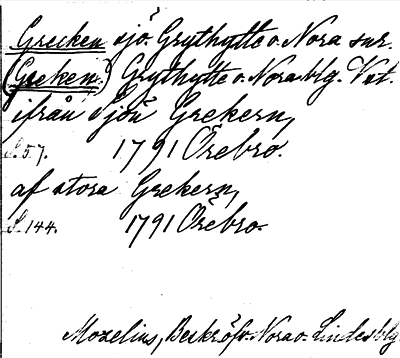 Grecken sjö. Grythytte o. Nora snr.
(Greken.) Grythytte o. Nora blg. Vst.
ifrån sjön Grekern,
S. 57. 1791 Örebro.
af stora Grekern,
S. 144. 1791 Örebro.
Moxelius, Beskr. öfv. Nora o. Lindes blg.